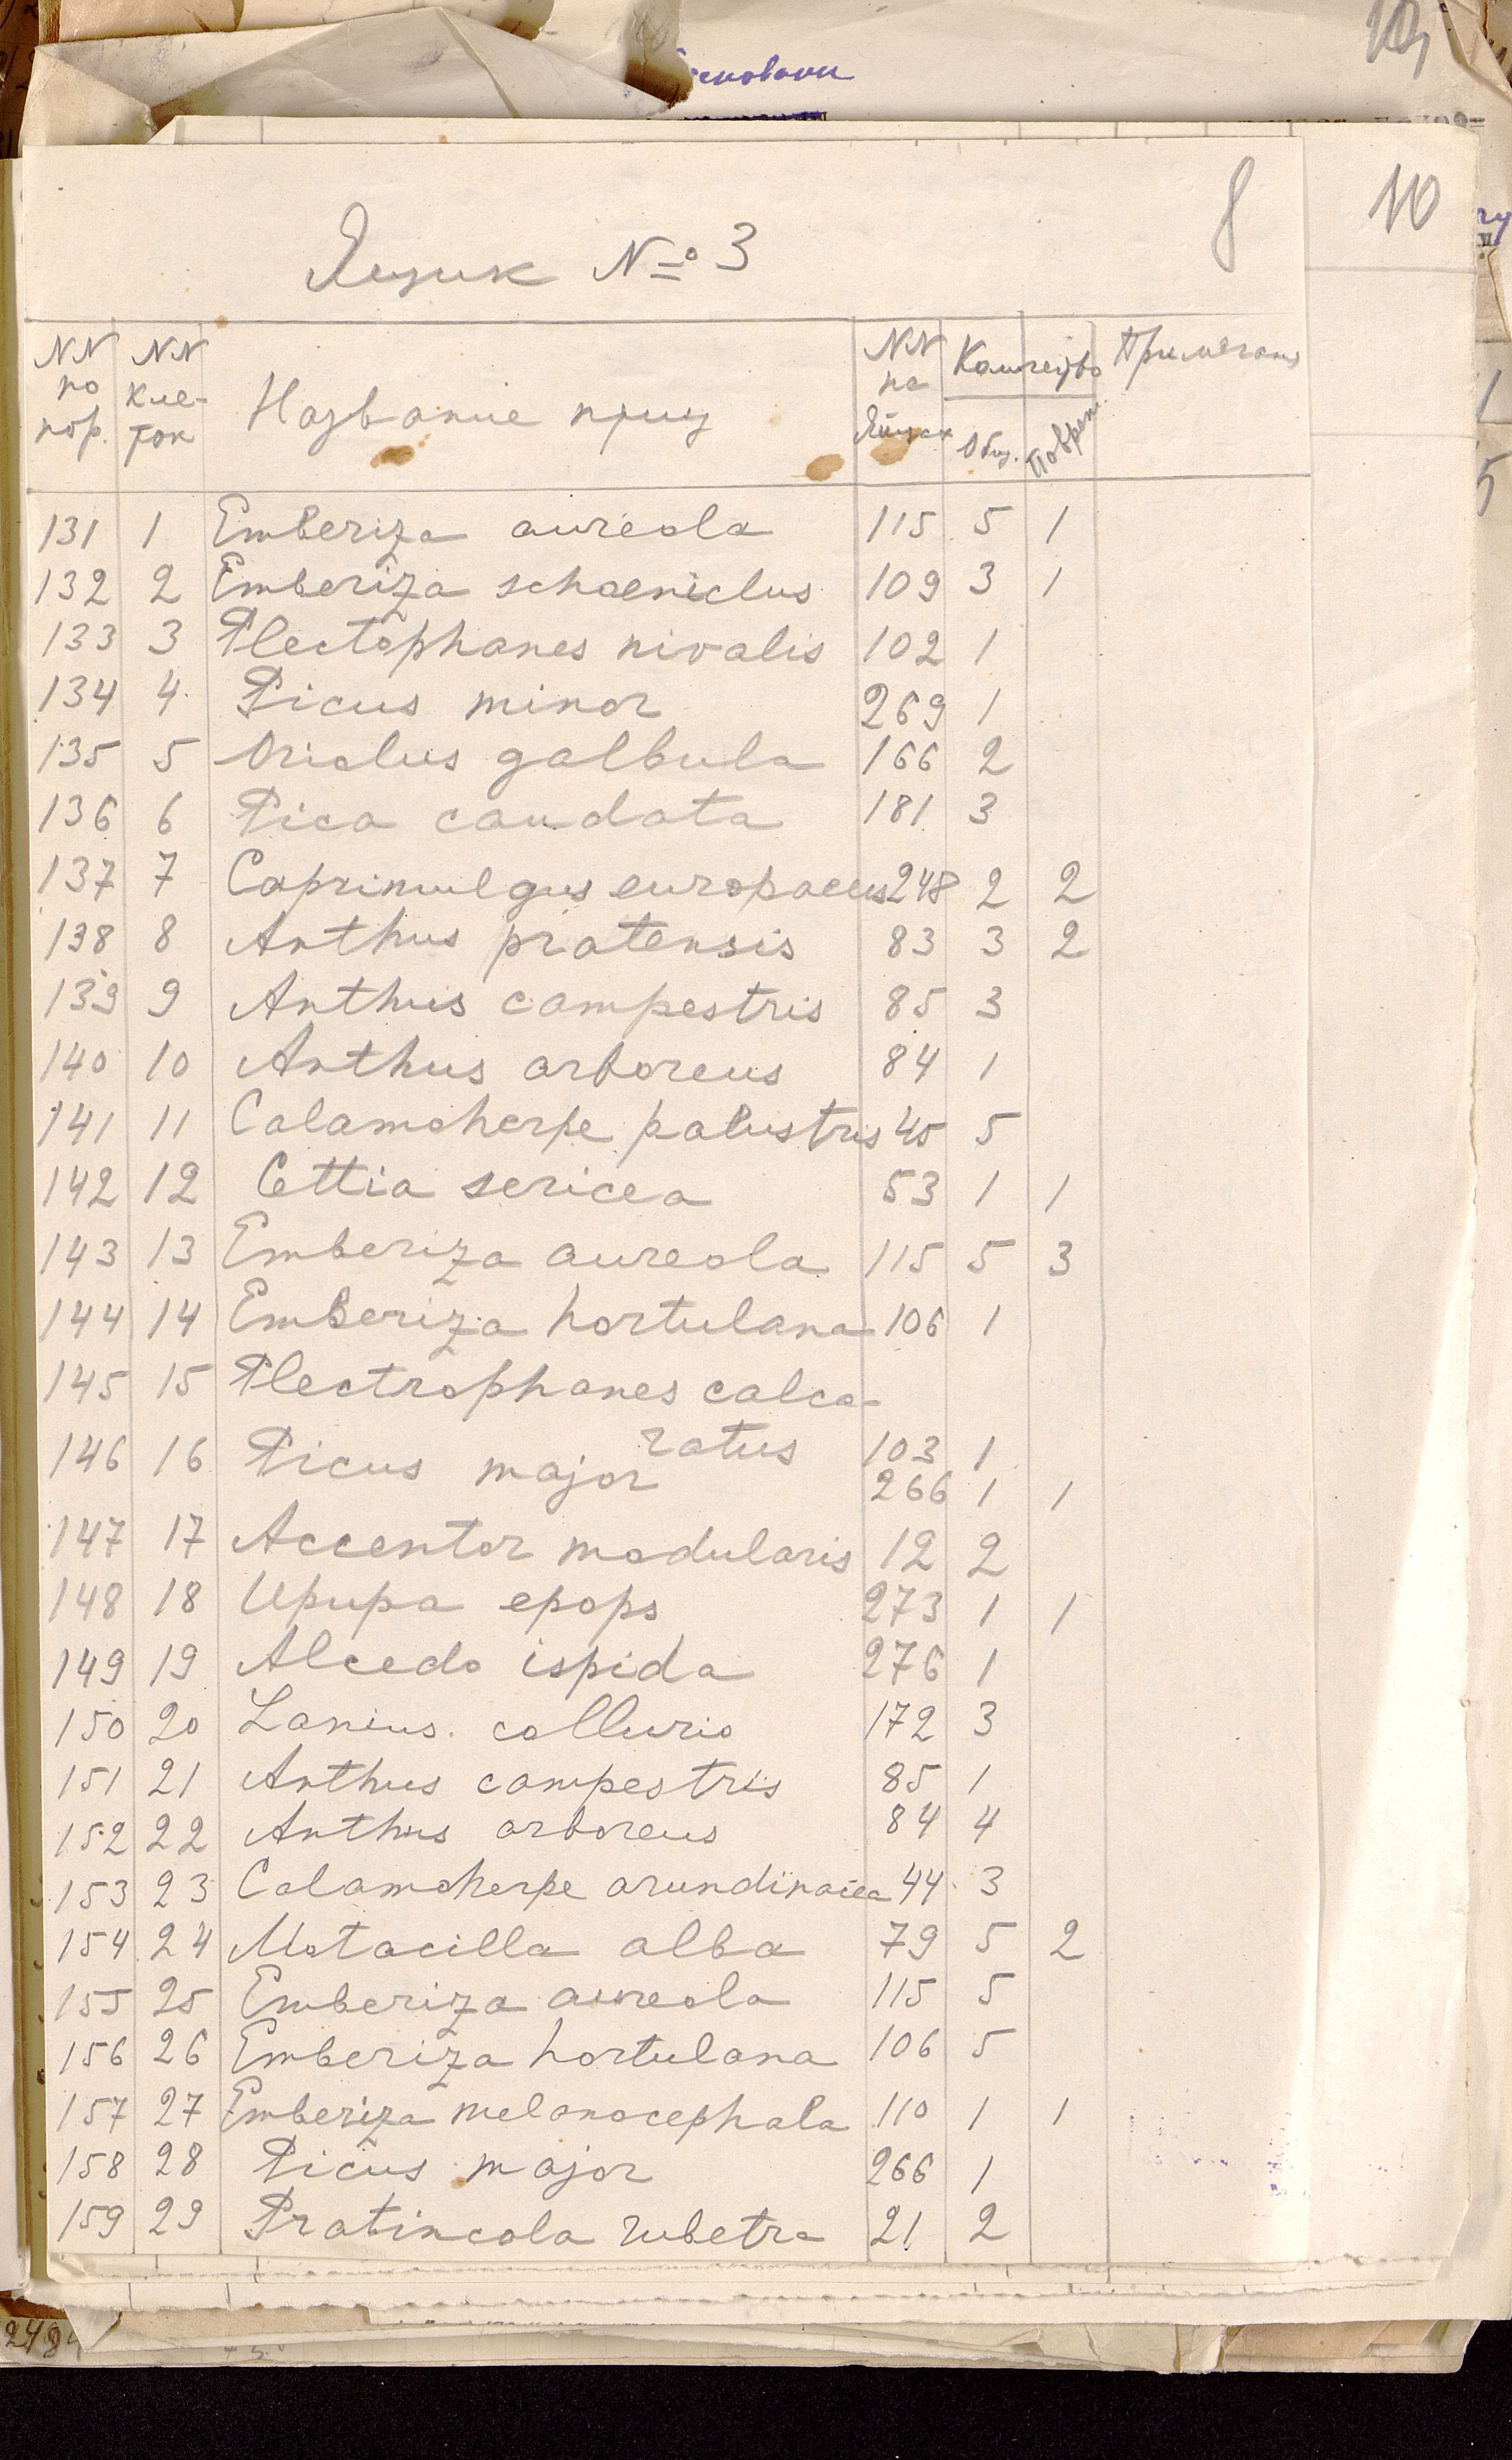 8
10
Ящик № 3
NN по пор. NN кле-ток Название птиц NN на Яйцах Количество Общ. Поврежд. Примечания
131 1 Emberiza aureola 115 5 1
132 2 Emberiza schoeniclus 109 3 1
133 3 Plectophanes nivalis 102 1
134 4 Picus minor 269 1
135 5 Oriolus galbula 166 2
136 6 Pica caudata 181 3
137 7 Caprimulgus europaeus 248 2 2
138 8 Anthus pratensis 83 3 2
139 9 Anthus campestris 85 3
140 10 Anthus arboreus 84 1
141 11 Calamoherpe palustris 45 5
142 12 Cettia sericea 53 1 1
143 13 Emberiza aureola 115 5 3
144 14 Emberiza hortulana 106 1
145 15 Plectrophanes calca-
ratus 103 1
146 16 Picus major 266 1 1
147 17 Accentor modularis 12 2
148 18 Upupa epops 273 1 1
149 19 Alcedo ispida 276 1
150 20 Lanius collurio 172 3
151 21 Anthus campestris 85 1
152 22 Anthus arboreus 84 4
153 23 Calamoherpe arundinacea 44 3
154 24 Motacilla alba 79 5 2
155 25 Emberiza aureola 115 5
156 26 Emberiza hortulana 106 5
157 27 Emberiza melanocephala 110 1 1
158 28 Picus major 266 1
159 29 Pratincola rubetra 21 2